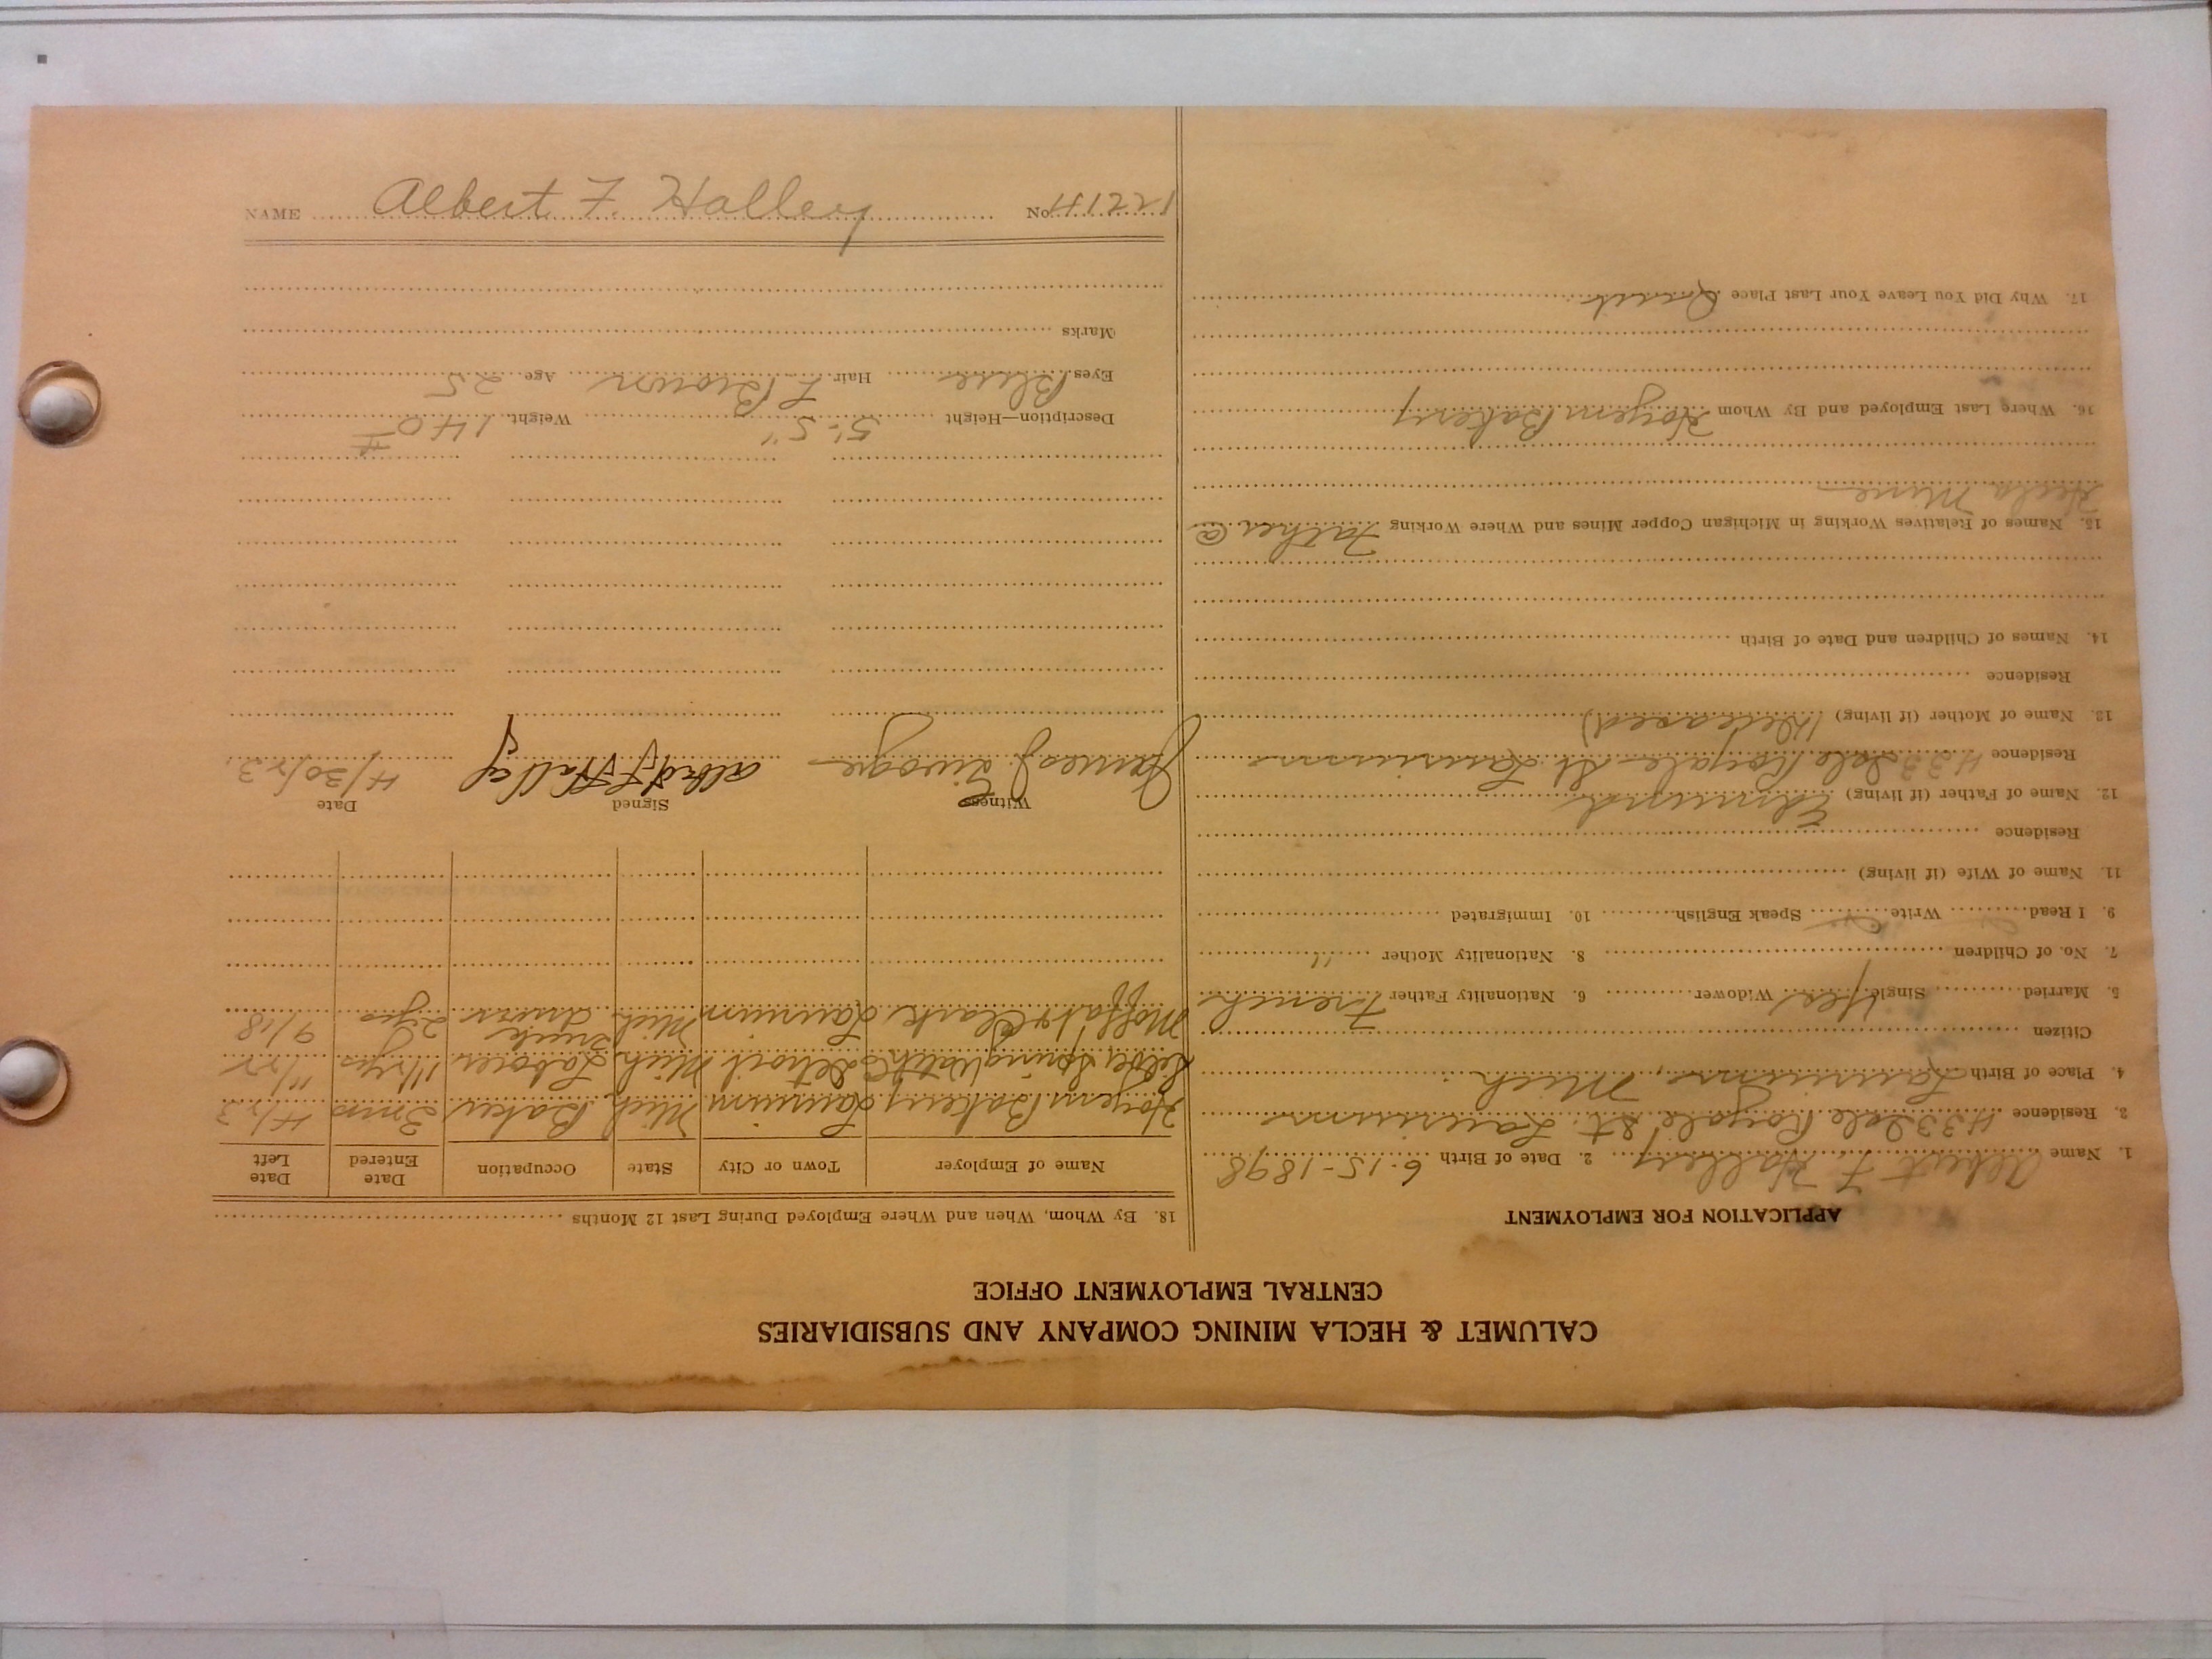 CALUMET & HECLA MINING COMPANY AND SUBSIDIARIES
CENTRAL EMPLOYMENT OFFICE
APPLICATION FOR EMPLOYMENT
1. Name Albert F. Halley 2. Date of Birth 6-15-1898
3. Residence 433 Isle Royale St. Laurium
4. Place of Birth Laurium, Mich
Citizen
5. Married Single Yes Widower 6. Nationality Father French
7. No. of Children 8. Nationality Mother "
9. I Read Write Speak English 10. Immigrated
11. Name of Wife (if living)
Residence
12. Name of Father (if living) Edmund
Residence 433 Isle Royale St. Laurium
13. Name of Mother (if living) (Deceased)
Residence
14. Names of Children and Date of Birth
15. Names of Relatives Working in Michigan Copper Mines and Where Working Father @
Hecla Mine
16. Where Last Employed and By Whom Hoyem Bakery
17. Why Did You Leave Your Last Place Quit
18. By Whom, When and Where Employed During Last 12 Months
Name of Employer Town or City State Occupation Date Entered Date Left
Hoyem Bakery Laurium Mich Baker 3 mos 4/23
Detroit Mich Laborer 11/22
Moffat & Clark Laurium Mich Truck Driver 2 yrs 9/18
Witness Signed Date
James J Albert F. Halley 4/30/23
Description—Height 5'-5" Weight 140#
Eyes Blue Hair L Brown Age 25
Marks
NAME Albert F. Halley No.